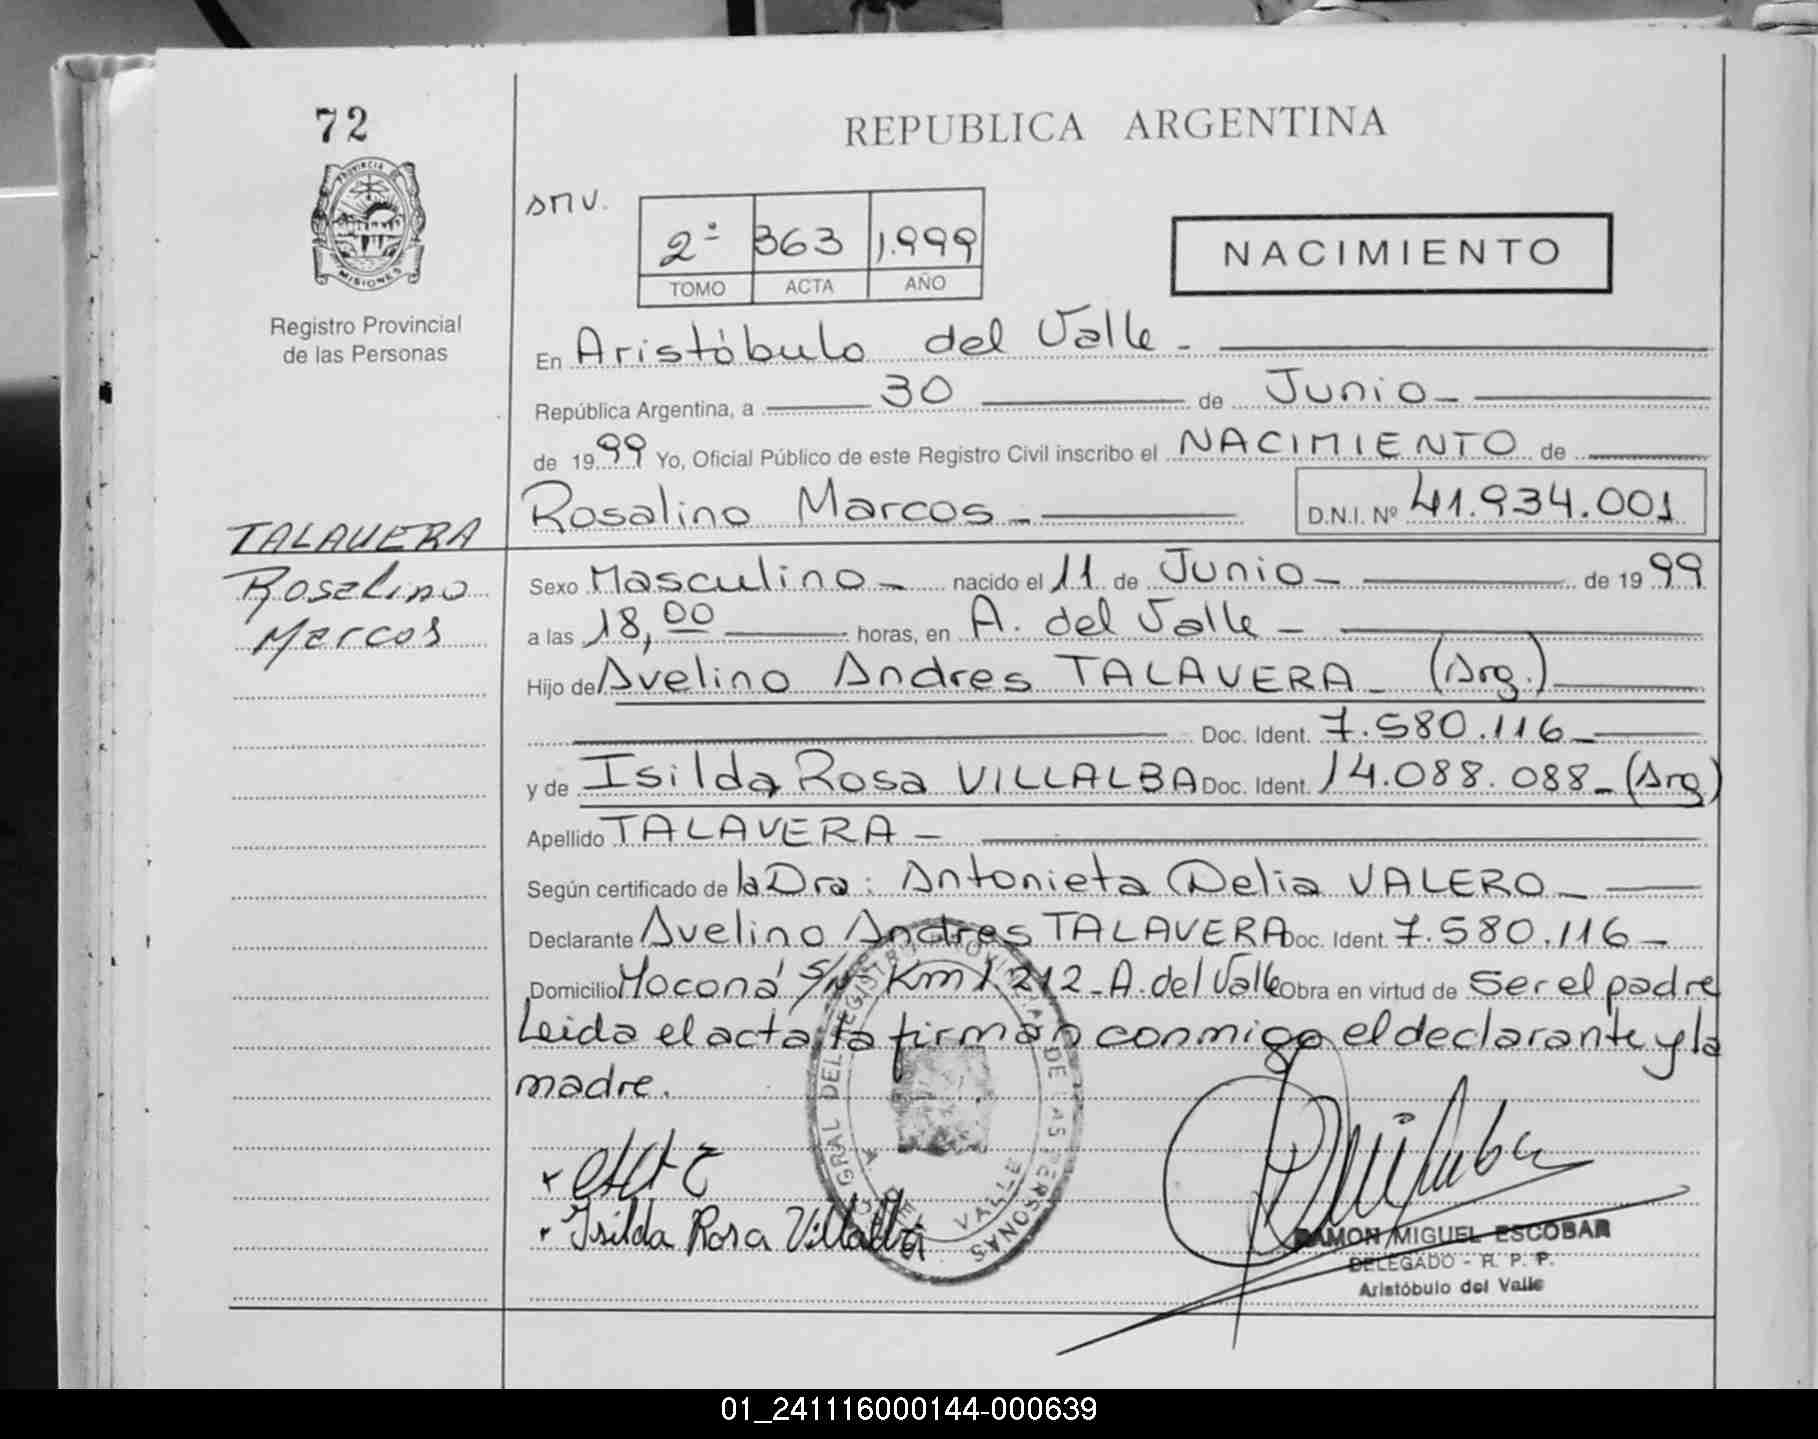 72
REPUBLICA ARGENTINA
PROVINCIA DE
MISIONES
Registro Provincial
de las Personas
smv.
2º 363 1.999
TOMO ACTA AÑO
NACIMIENTO
En Aristóbulo del Valle -
República Argentina, a 30 de Junio -
de 1999 Yo, Oficial Público de este Registro Civil inscribo el NACIMIENTO de
Rosalino Marcos - D.N.I. Nº 41.934.001
TALAVERA
Rosalino
Marcos
Sexo Masculino - nacido el 11 de Junio - de 1999
a las 18,00 horas, en A. del Valle -
Hijo de Avelino Andres TALAVERA - (Arg.)
Doc. Ident. 7.580.116 -
y de Isilda Rosa VILLALBA Doc. Ident. 14.088.088 - (Arg)
Apellido TALAVERA -
Según certificado de la Dra: Antonieta Delia VALERO -
Declarante Avelino Andres TALAVERA Doc. Ident. 7.580.116 -
Domicilio Moconá S/Nº Km 1212 - A. del Valle Obra en virtud de ser el padre
Leida el acta la firman conmigo el declarante y la
madre.
GRAL DEL REGISTRO PROVINCIAL DE LAS PERSONAS
VALLE
Isilda Rosa Villalba
RAMON MIGUEL ESCOBAR
DELEGADO - R. P. P.
Aristóbulo del Valle
01_241116000144-000639